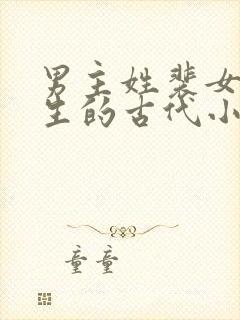 男主姓裴女
生的古代小
童童